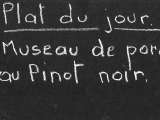 Plat du jour.
Museau de por
au Pinot noir.